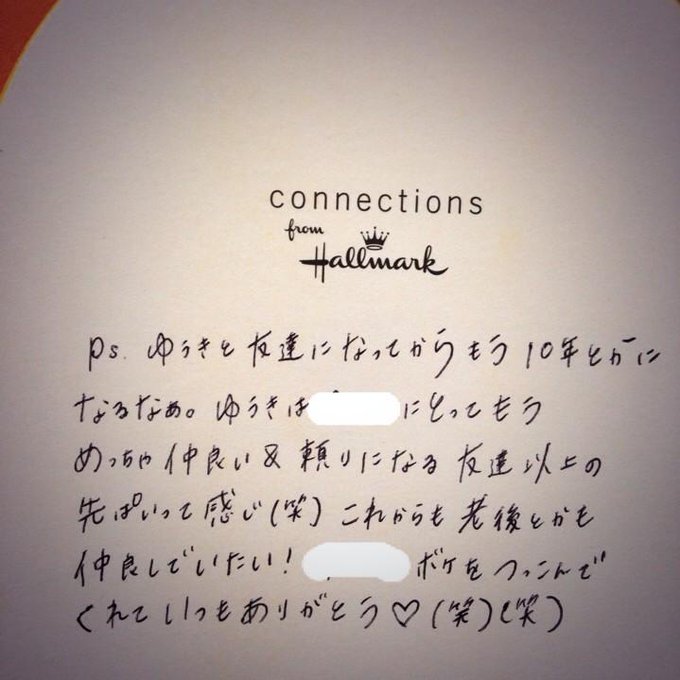 connections
from
Hallmark
Ps. ゆうきと友達になってからもう10年とかに
なるなぁ。ゆうきは にとってもう
めっちゃ仲良い&頼りになる友達以上の
先ぱいって感じ(笑)これからも老後とかも
仲良しでいたい! ボケをつっこんで
くれていつもありがとう♡(笑)(笑)